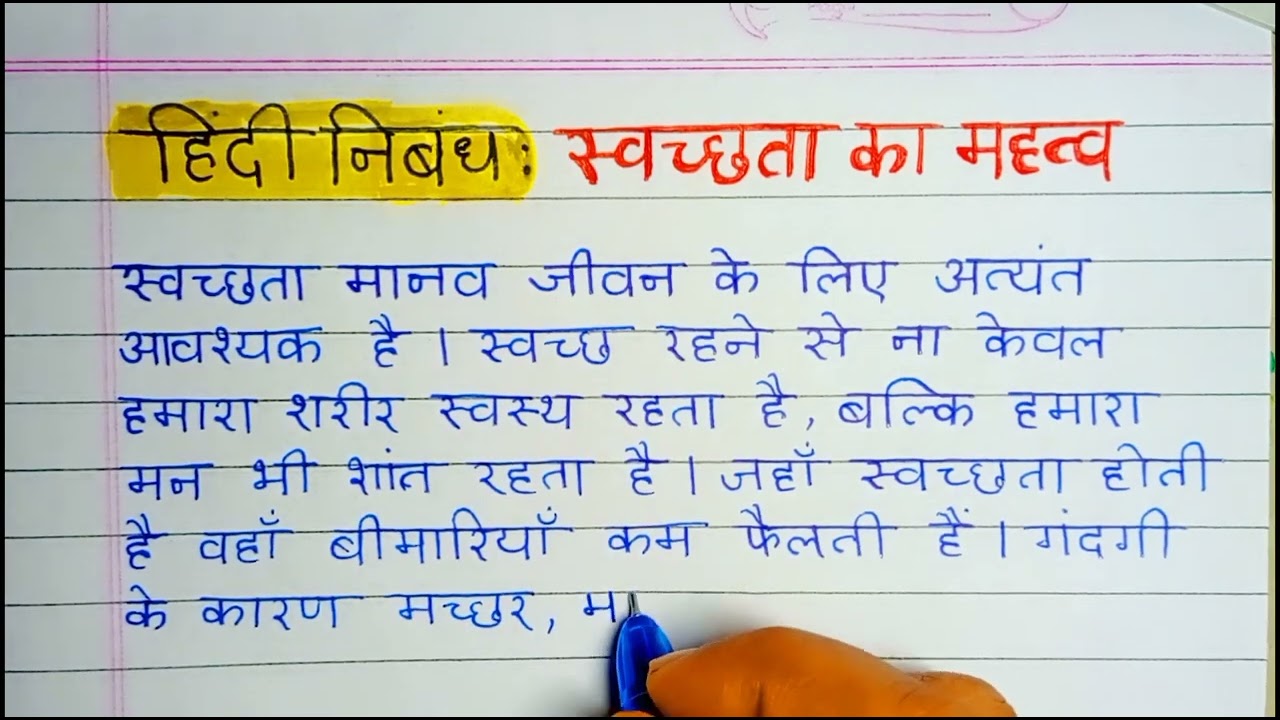 हिंदी निबंध: स्वच्छता का महत्व
स्वच्छता मानव जीवन के लिए अत्यंत
आवश्यक है । स्वच्छ रहने से ना केवल
हमारा शरीर स्वस्थ रहता है, बल्कि हमारा
मन भी शांत रहता है । जहाँ स्वच्छता होती
है वहाँ बीमारियाँ कम फैलती हैं । गंदगी
के कारण मच्छर, म